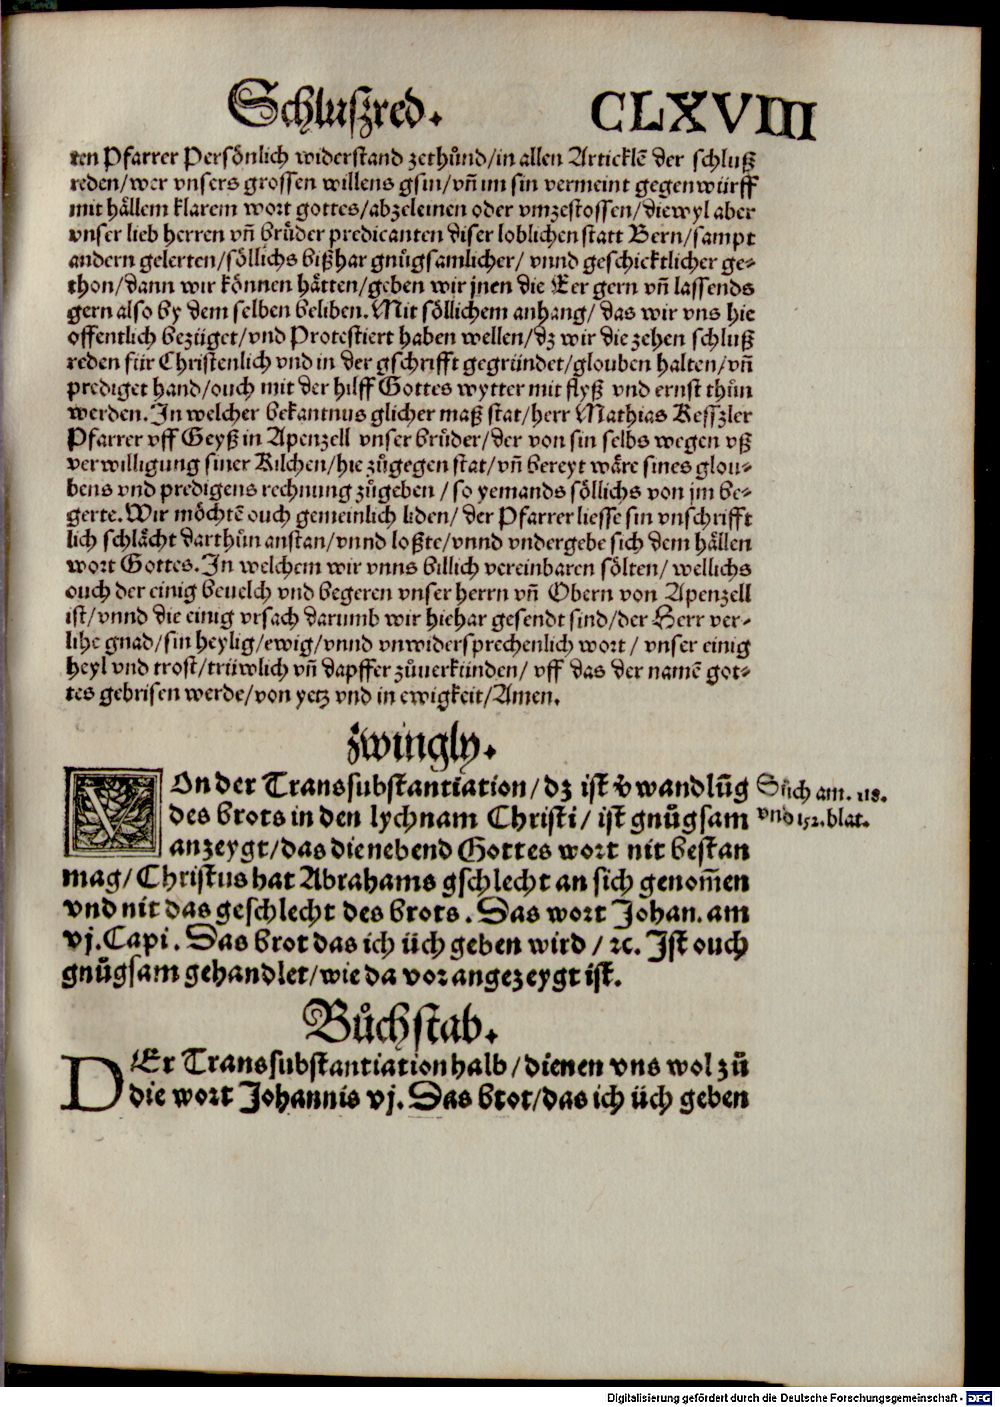 Schluszred. CLXVIII
ren Pfarrer Persönlich widerstand zethůnd/in allen Articklē der schluß
reden/wer vnsers grossen willens gsin/vñ im sin vermeint gegenwürff
mit hällem klarem wort gottes/abzeleinen oder vmzestossen/diewyl aber
vnser lieb herren vñ brůder predicanten diser loblichen statt Bern/sampt
andern gelerten/söllichs bißhar gnůgsamlicher/ vnnd geschicktlicher ge-
thon/dann wir können hätten/geben wir jnen die Eer gern vñ lassends
gern also by dem selben beliben. Mit söllichem anhang/ das wir vns hie
offentlich bezüget/vnd Protestiert haben wellen/dz wir die zehen schluß
reden für Christenlich vnd in der gschrifft gegründet/glouben halten/vñ
prediget hand/ouch mit der hilff Gottes wytter mit flyß vnd ernst thůn
werden. In welcher bekantnus glicher maß stat/herr Mathias Kesszler
Pfarrer vff Geyß in Apenzell vnser brůder/der von sin selbs wegen vß
verwilligung siner Kilchen/hie zůgegen stat/vñ bereyt wäre sines glou-
bens vnd predigens rechnung zůgeben / so yemands söllichs von jm be-
gerte. Wir möchtē ouch gemeinlich liden/ der Pfarrer liesse sin vnschrifft
lich schlächt darthůn anstan/vnnd loßte/vnnd vndergebe sich dem hällen
wort Gottes. In welchem wir vnns billich vereinbaren sölten/ wellichs
ouch der einig beuelch vnd begeren vnser herrn vñ Obern von Apenzell
ist/vnnd die einig vrsach darumb wir hiehar gesendt sind/der Herr ver-
lihe gnad/sin heylig/ewig/vnnd vnwidersprechenlich wort / vnser einig
heyl vnd trost/trüwlich vñ dapffer zůuerkünden/ vff das der namē got-
tes gebrisen werde/von yetz vnd in ewigkeit/Amen.
Zwingly.
VOn der Transsubstantiation/dz ist v̄wandlūg
des brots in den lychnam Christi/ ist gnůgsam
anzeygt/das die nebend Gottes wort nit bestan
mag/Christus hat Abrahams gschlecht an sich genom̄en
vnd nit das geschlecht des brots. Das wort Johan. am
vj. Capi. Das brot das ich üch geben wird / ꝛc. Ist ouch
gnůgsam gehandlet/wie da vor angezeygt ist.
Sůch am. 118.
vnd 152. blat.
Bůchstab.
DEr Transsubstantiation halb/dienen vns wol zů
die wort Johannis vj. Das brot/das ich üch geben
Digitalisierung gefördert durch die Deutsche Forschungsgemeinschaft - DFG